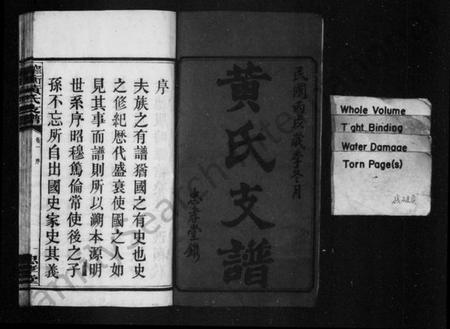 民國丙戌歲季冬月
黃氏支譜
忠孝堂鐫
序
夫族之有譜猶國之有史也史
之修紀歷代盛衰使國之人如
見其事而譜則所以溯本源明
世系序昭穆篤倫常使後之子
孫不忘所自出國史家史其義
黃氏支譜
卷一
序
Whole Volume
Tight Binding
Water Damage
Torn Page(s)